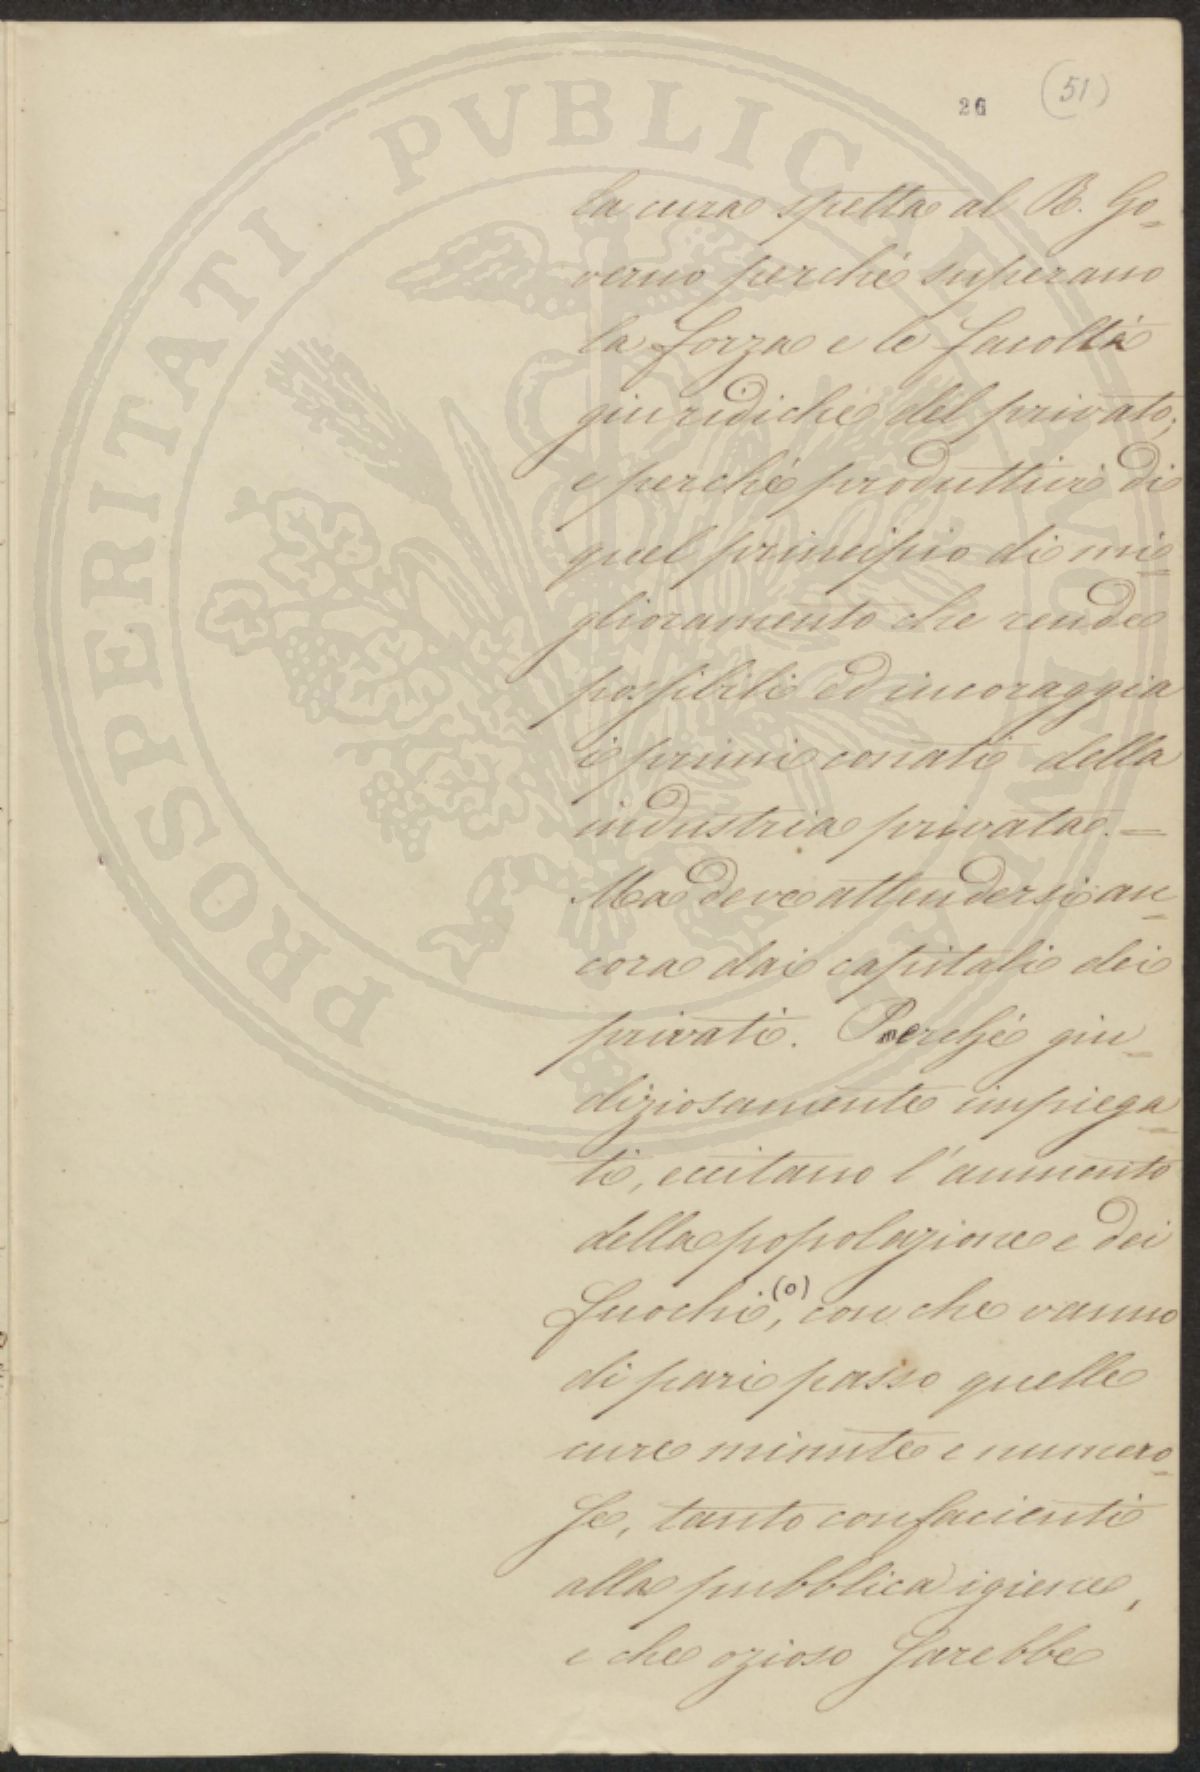 26 (51)
la cura spetta al R. Go-
verno perché superano
la forza e le facoltà
giuridiche del privato;
e perché produttivi di
quel principio di mi-
glioramento che rende
possibili ed incoraggia
i primi conati della
industria privata. =
Ma deve attendersi an-
cora dai capitali dei
privati. Perché giu-
diziosamente impiega-
ti, eccitano l'aumento
della popolazione e dei
fuochi,(o) con che vanno
di pari passo quelle
cure minute e numero-
se, tanto confacienti
alla pubblica igiene,
e che ozioso sarebbe
PROSPERITATI PVBLICAE